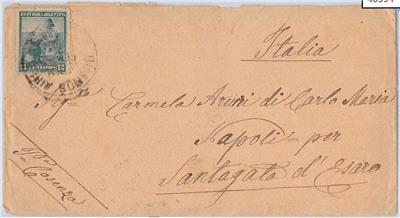 REPUBLICA ARGENTINA
12 CENTAVOS 12
BUENOS AIRES
Italia
Sig.ra Carmela Aruni di Carlo Maria
Napoli per
Santagata d'Esaro
Cosenza